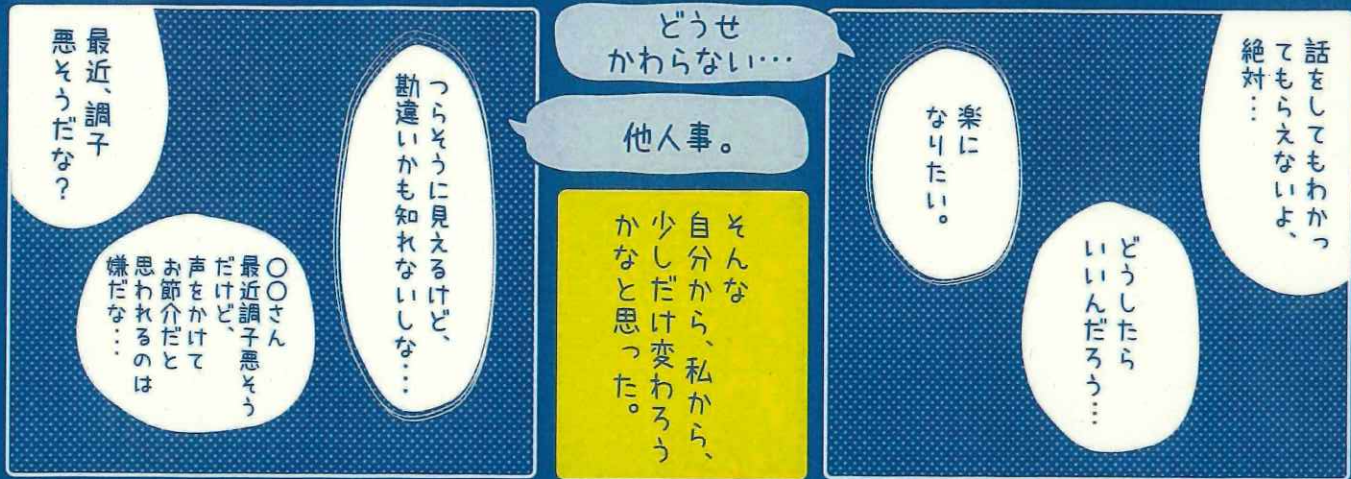 話をしてもわかっ
てもらえないよ、
絶対…
どうしたら
いいんだろう…
楽に
なりたい。
どうせ
かわらない…
他人事。
そんな
自分から、私から、
少しだけ変わろう
かなと思った。
つらそうに見えるけど、
勘違いかも知れないしな…
〇〇さん
最近調子悪そう
だけど、
声をかけて
お節介だと
思われるのは
嫌だな…
最近、調子
悪そうだな？